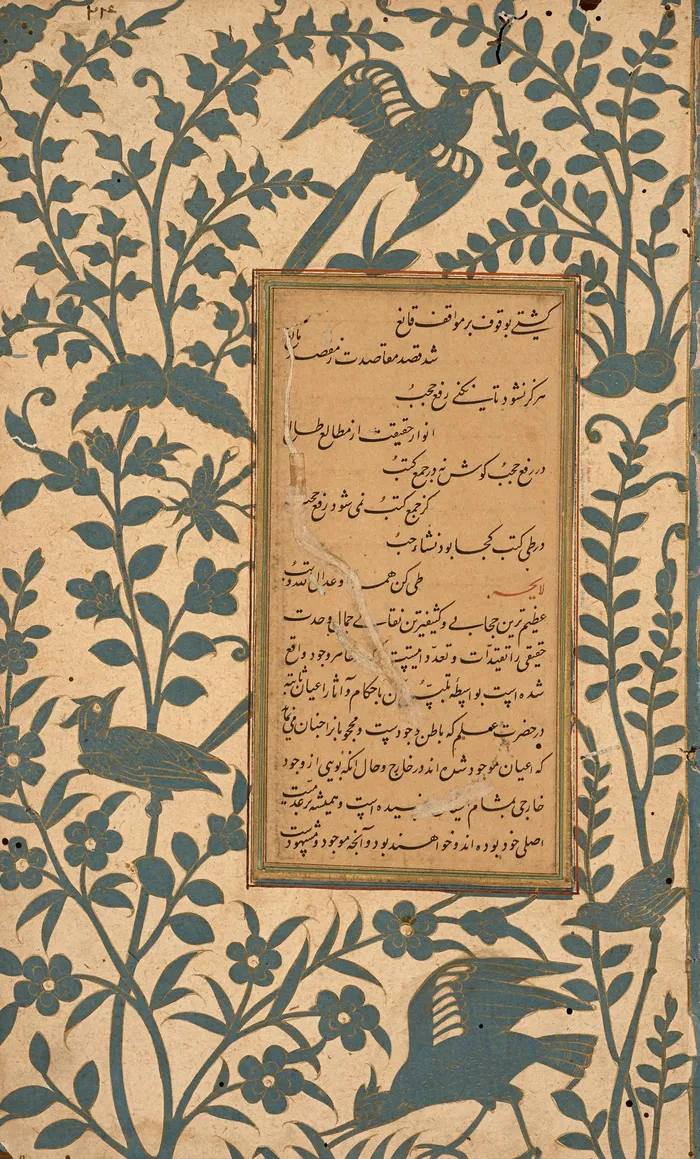 گشتی بوقوف بر مواقف قانع
شد قصد مقاصدت ز مقصد
هرگز نشود تا نکنی رفع حجب
انوار حقیقت از مطالع طالع
در رفع حجب کوش نه در جمع کتب
کز جمع کتب نمی شود رفع حجب
در طی کتب کجا بود نشاء حب
طی کن همه و عد الی الله و تب
لایحه
عظیم ترین حجابی و کثیفترین نقابی جمال وحدت
حقیقی را تقیدات و تعدداتیست ظاهر وجود واقع
شده است بواسطهٔ تلبس آن باحکام و آثار اعیان ثابته
در حضرت علم که باطن وجودست و محجوبانرا چنان می نماید
که اعیان موجود شده اند در خارج و حال آنکه بویی از وجود
خارجی بمشام ایشان نرسیده است و همیشه بر عدمیت
اصلی خود بوده اند و خواهند بود و آنچه موجود و مشهودست